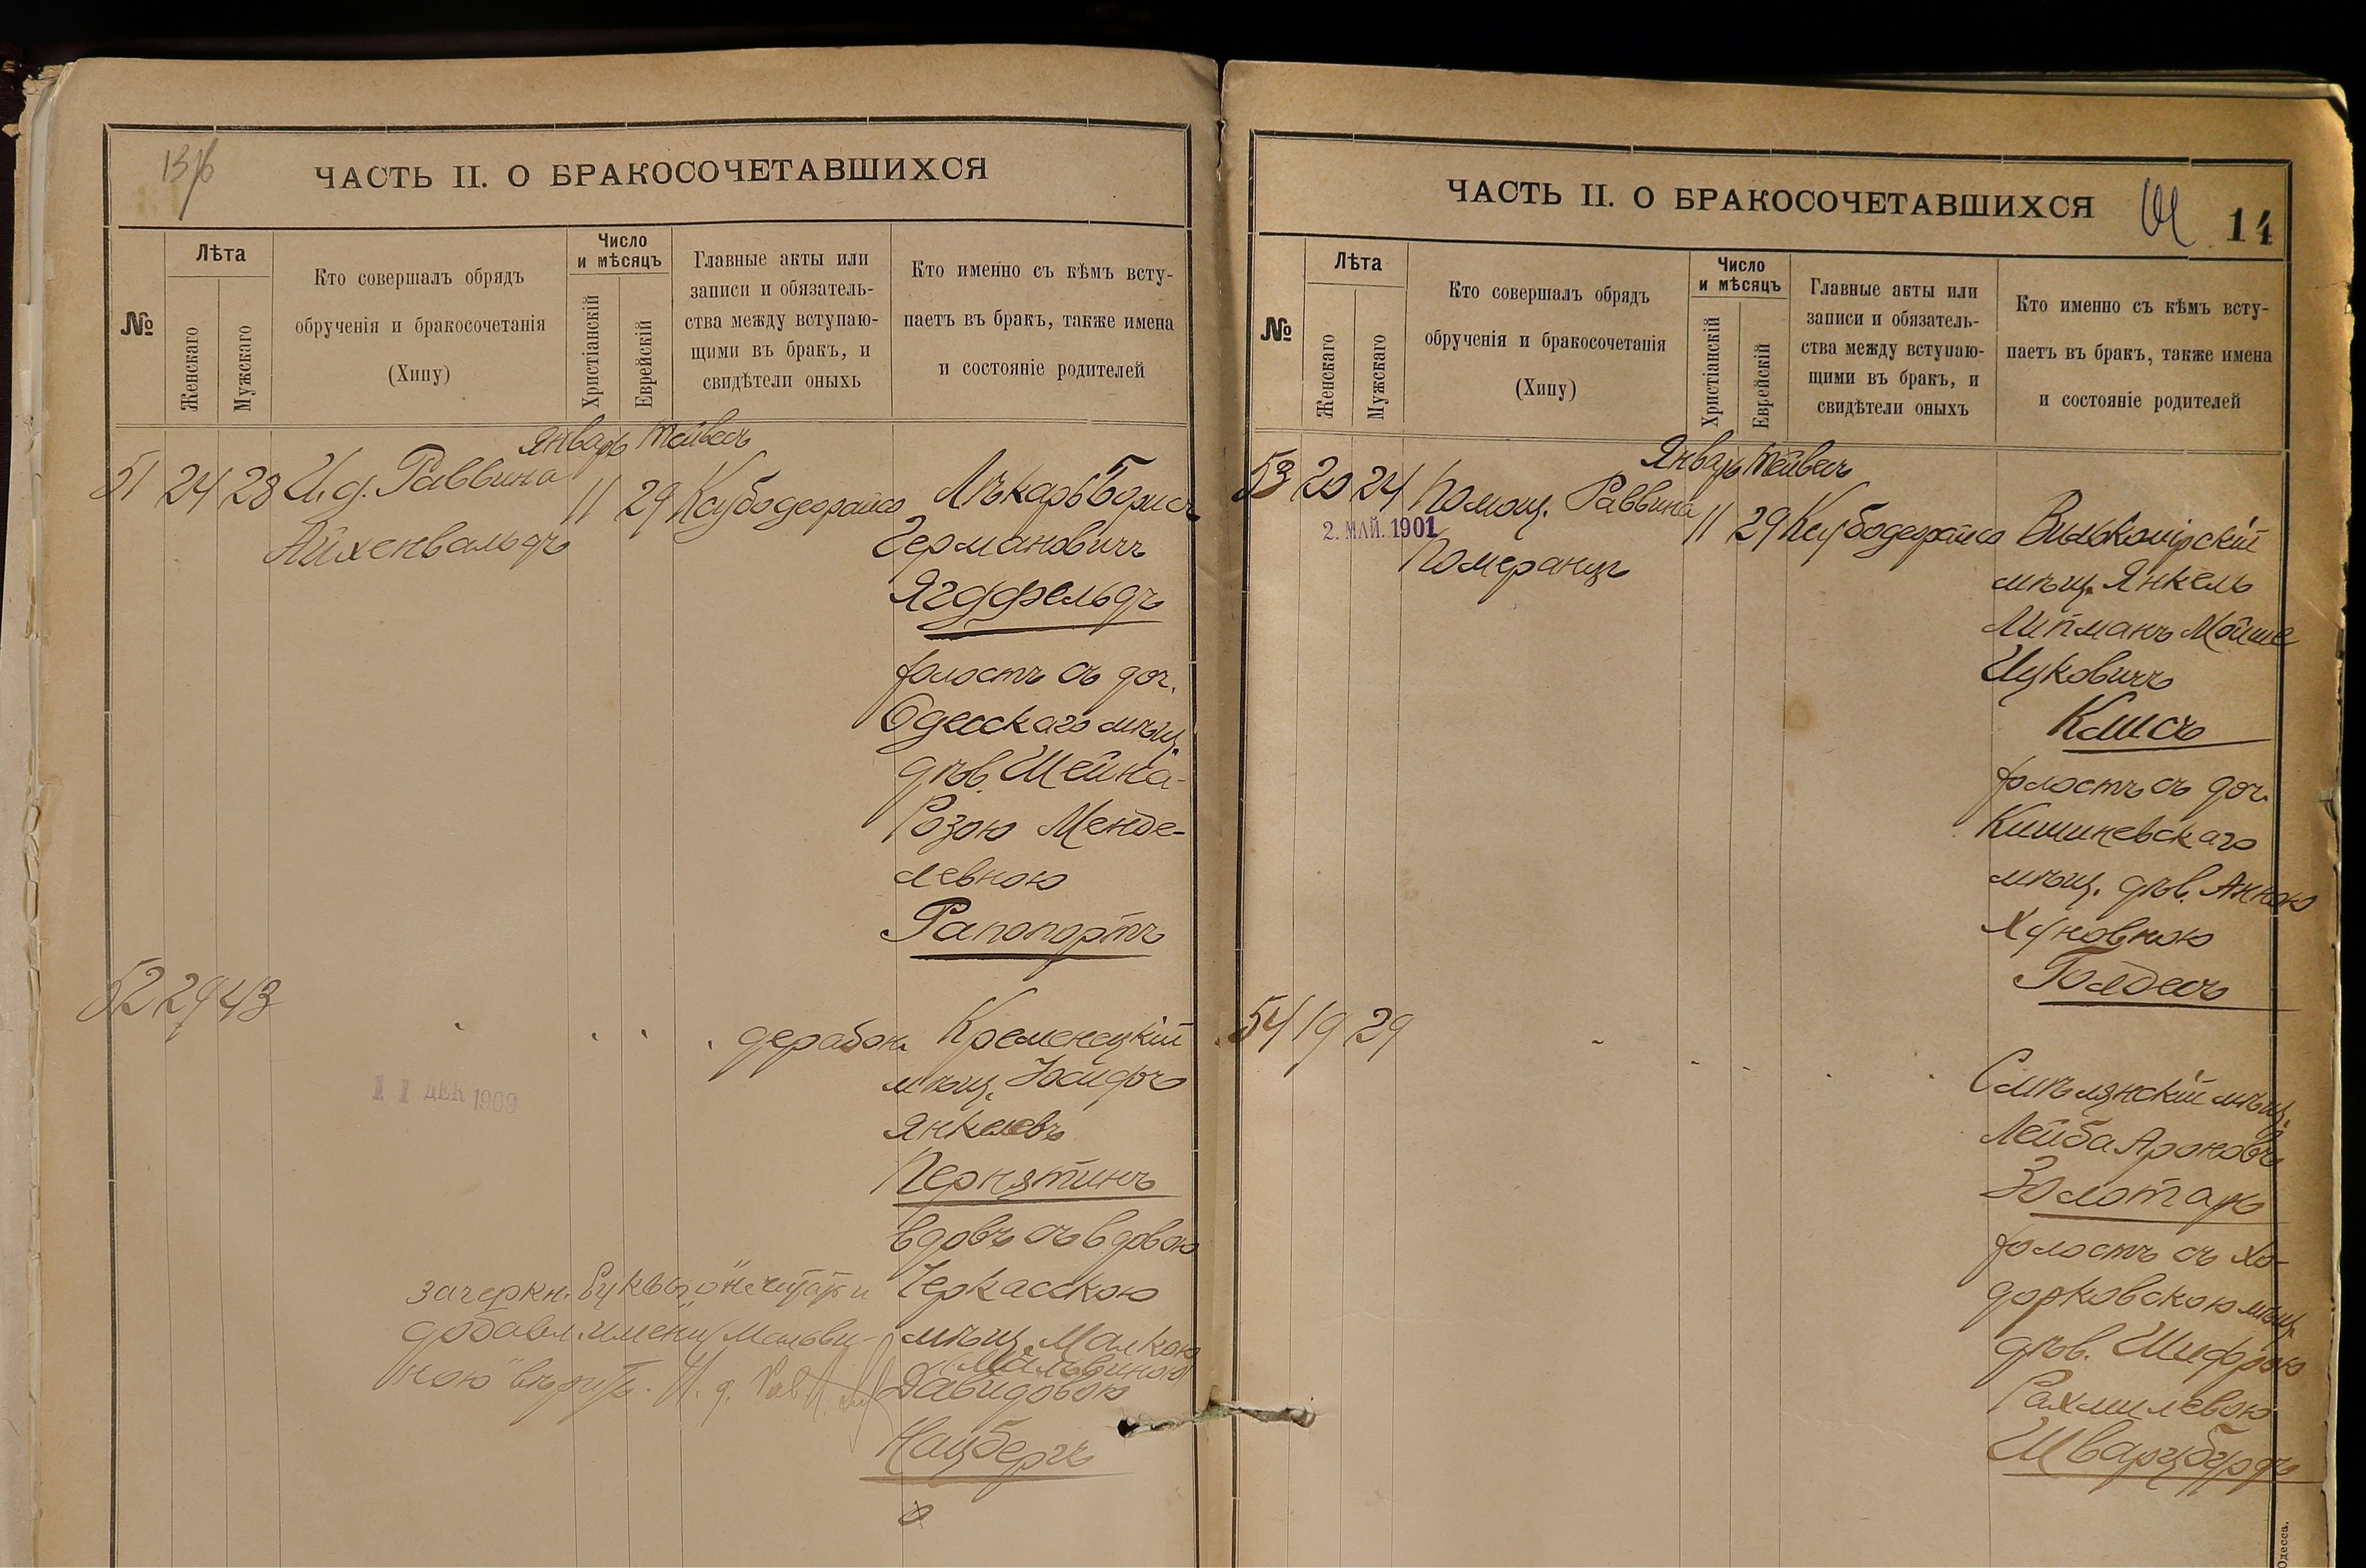 13/6
ЧАСТЬ II. О БРАКОСОЧЕТАВШИХСЯ
№
Лѣта
Женскаго
Мужскаго
Кто совершалъ обрядъ
обрученія и бракосочетанія
(Хипу)
Число
и мѣсяцъ
Христіанскій
Еврейскій
Главные акты или
записи и обязатель-
ства между вступаю-
щими въ бракъ, и
свидѣтели оныхъ
Кто именно съ кѣмъ всту-
паетъ въ бракъ, также имена
и состояніе родителей
Январь Тейвесъ
51 24 28 И. д. Раввина 11 29 Ксубодеорайсо Лѣкарь Борисъ
Айхенвальдъ Германовичъ
Ягдфельдъ
холостъ съ доч.
Одесскаго мѣщ.
дѣв. Шейна-
Розою Менде-
левною
Рапопортъ
52 29 43 дерабон. Кременецкій
мѣщ. Іосифъ
11 ДЕК 1909
Янкелевъ
Пернятинъ
вдовъ съ вдовою
зачеркн. буквы не читать и Черкасскою
добавл. имени „Мальви- мѣщ. Малкою
(Мальвиною)
ною" вѣрить. И. д. Рав. Давидовою
Нацбергъ
ЧАСТЬ II. О БРАКОСОЧЕТАВШИХСЯ
14
№
Лѣта
Женскаго
Мужскаго
Кто совершалъ обрядъ
обрученія и бракосочетанія
(Хипу)
Число
и мѣсяцъ
Христіанскій
Еврейскій
Главные акты или
записи и обязатель-
ства между вступаю-
щими въ бракъ, и
свидѣтели оныхъ
Кто именно съ кѣмъ всту-
паетъ въ бракъ, также имена
и состояніе родителей
Январь Тейвесъ
53 20 24 Помощ. Раввина 11 29 Ксубодеорайсо Вилькомірскій
2. МАЙ. 1901
Померанцъ мѣщ. Янкель
Липманъ Мойше
Ицковичъ
Клисъ
холостъ съ доч.
Кишиневскаго
мѣщ. дѣв. Анною
Хуновною
Голдесъ
54 19 29
Смѣлянскій мѣщ.
Лейба Ароновъ
Золотарь
холостъ съ Хо-
дорковскою мѣщ.
дѣв. Шифрою
Рахмилевою
Шварцбурдъ
Одесса.